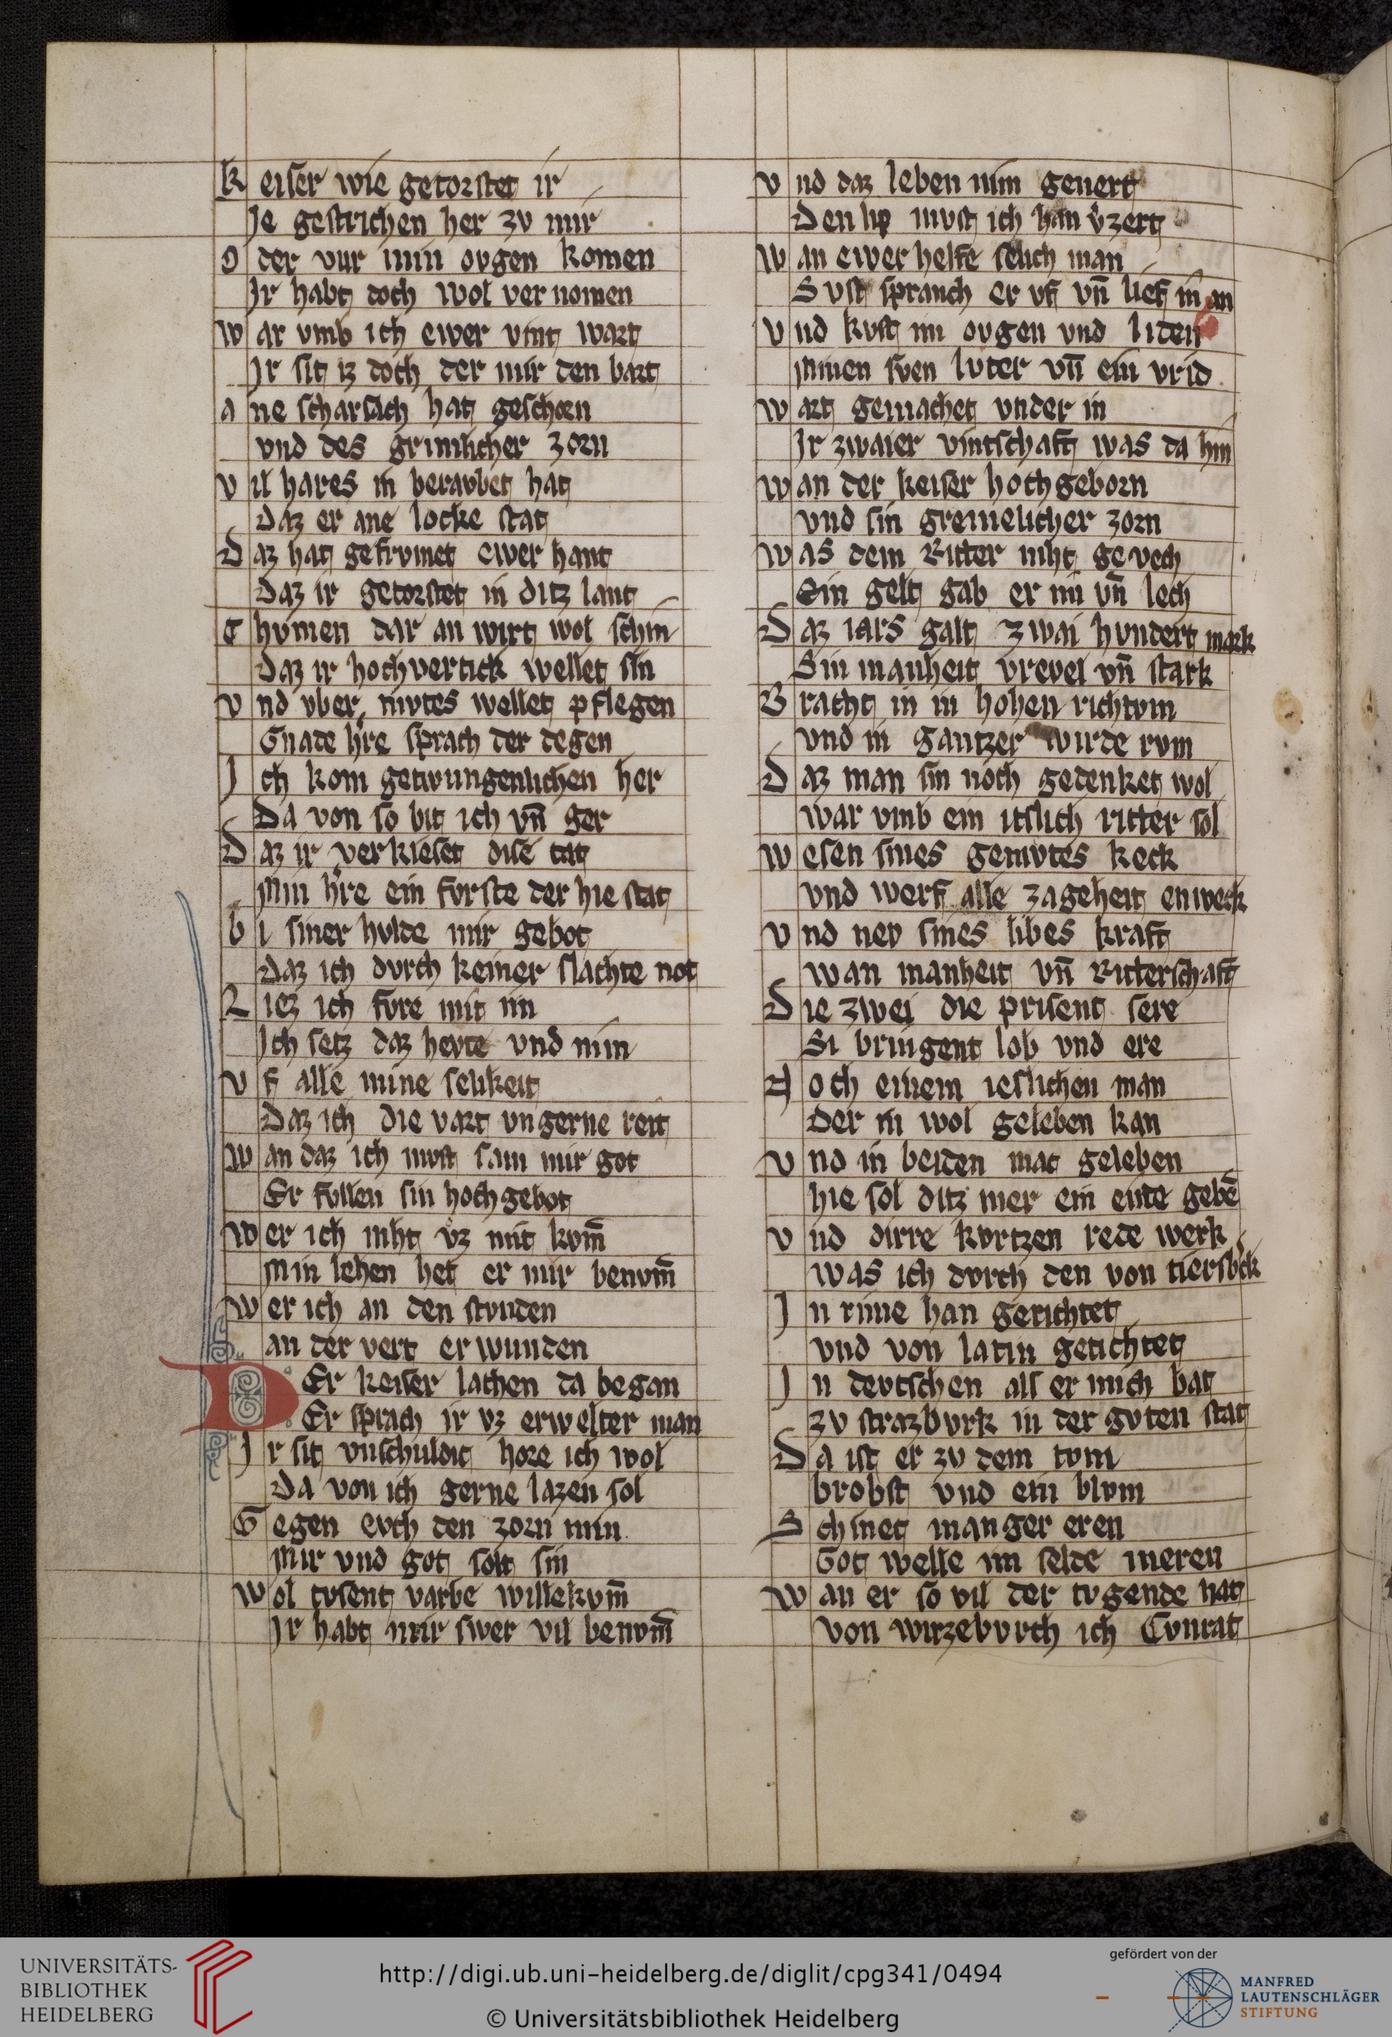 Keiser wie getorstet ir
Je gestrichen her zv mir
Oder vur min ovgen komen
Ir habt doch wol ver nomen
War vmb ich ewer vint wart
Ir sit iz doch der mir den bart
ane scharsach hat geschorn
vnd des grimlicher zorn
Vil hares in beravbet hat
Daz er ane locke stat
Daz hat gefrvmet ewer hant
Daz ir getorstet in ditz lant
Chvmen dar an wirt wol schin
Daz ir hochvertick wellet sin
Vnd vber mvtes wellet pflegen
Gnade hˀre sprach der degen
Ich kom getwungenlichen her
Da von so bit ich vn̄ ger
Daz ir verkieset dise tat
Min hˀre ein fvrste der hie stat
bi siner hvlde mir gebot
Daz ich dvrch keiner slachte not
Liez ich fvre mit im
Ich setz daz hevte vnd nim
Vf alle mine selikeit
Daz ich die vart vngerne reit
Wan daz ich mvst sam mir got
Er fvllen sin hochgebot
Wer ich niht vz mit kvm̄
Min lehen het er mir benvm̄
Wer ich an den stvnden
an der vert erwunden
DEr keiser lachen da began
Er sprach ir vz erwelter man
Ir sit vnschuldic hore ich wol
Da von ich gerne lazen sol
Gegen evch den zorn min
Mir vnd got solt sin
Wol tvsent varbe willekvm̄
Ir habt mir swer vil benvm̄
Vnd daz leben min genert
Den lip mvst ich han vˀzert
Wan ewer helfe selich man
Svst spranch er vf vn̄ lief in an
Vnd kvst im ovgen vnd liden
Minen sven lvter vn̄ ein vrid
Wart gemachet vnder in
Ir zwaier vintschaft was da hin
Wan der keiser hochgeborn
vnd sin gremelicher zorn
Was dem Ritter niht gevech
Ein gelt gab er im vn̄ lech
Daz iars galt zwai hvndert mark
Sin manheit vrevel vn̄ stark
Bracht in in hohen richtvm
vnd in gantzer wirde rvm
Daz man sin noch gedenket wol
War vmb ein itslich ritter sol
Wesen sines gemvtes keck
vnd werf alle zageheit enweck
Vnd nev sines libes kraft
Wan manheit vn̄ Ritterschaft
Die zwei die prisent sere
Si bringent lob vnd ere
Noch einem ieslichen man
Der in wol geleben kan
Vnd in beiden mac geleben
hie sol ditz mer ein ente gebē
Vnd dirre kvrtzen rede werk
Was ich dvrch den von tiersbˀck
In rime han gerichtet
vnd von latin getichtet
In devtschen als er mich bat
zv strazbvrk in der gvten stat
Da ist er zv dem tvm
brobst vnd ein blvm
Schinet manger eren
Got welle im selde meren
Wan er so vil der tvgende hat
von wirzebvrch ich Cvnrat
UNIVERSITÄTS-
BIBLIOTHEK
HEIDELBERG
http://digi.ub.uni-heidelberg.de/diglit/cpg341/0494
© Universitätsbibliothek Heidelberg
gefördert von der
MANFRED
LAUTENSCHLÄGER
STIFTUNG